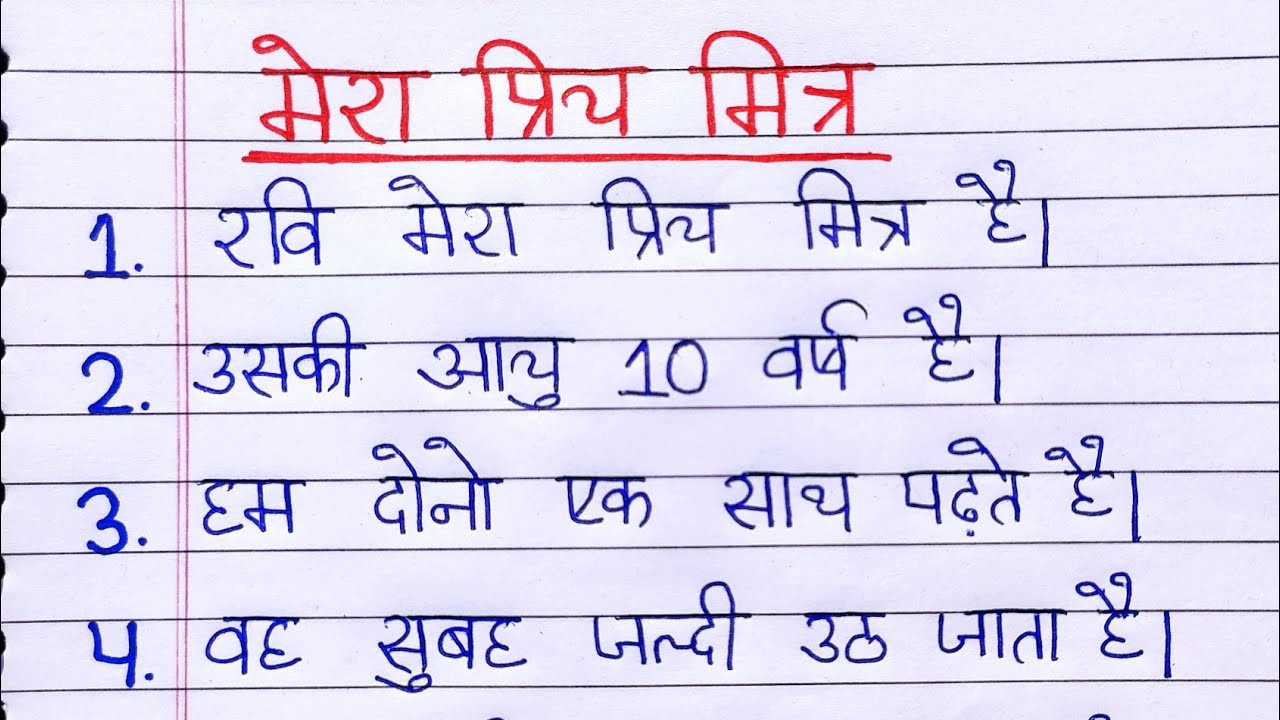 मेरा प्रिय मित्र
1. रवि मेरा प्रिय मित्र है।
2. उसकी आयु 10 वर्ष है।
3. हम दोनो एक साथ पढ़ते है।
4. वह सुबह जल्दी उठ जाता है।